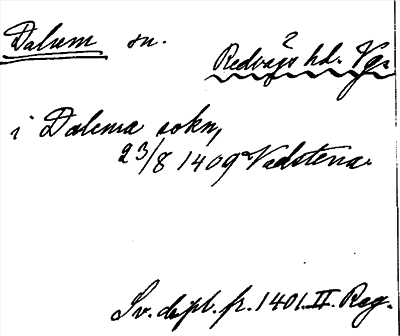 Dalum sn.
Redvägs hd. Vg.
i Dalema sokn,
23/8 1409 Vadstena.
Sv. dipl. fr. 1401. II. Reg.